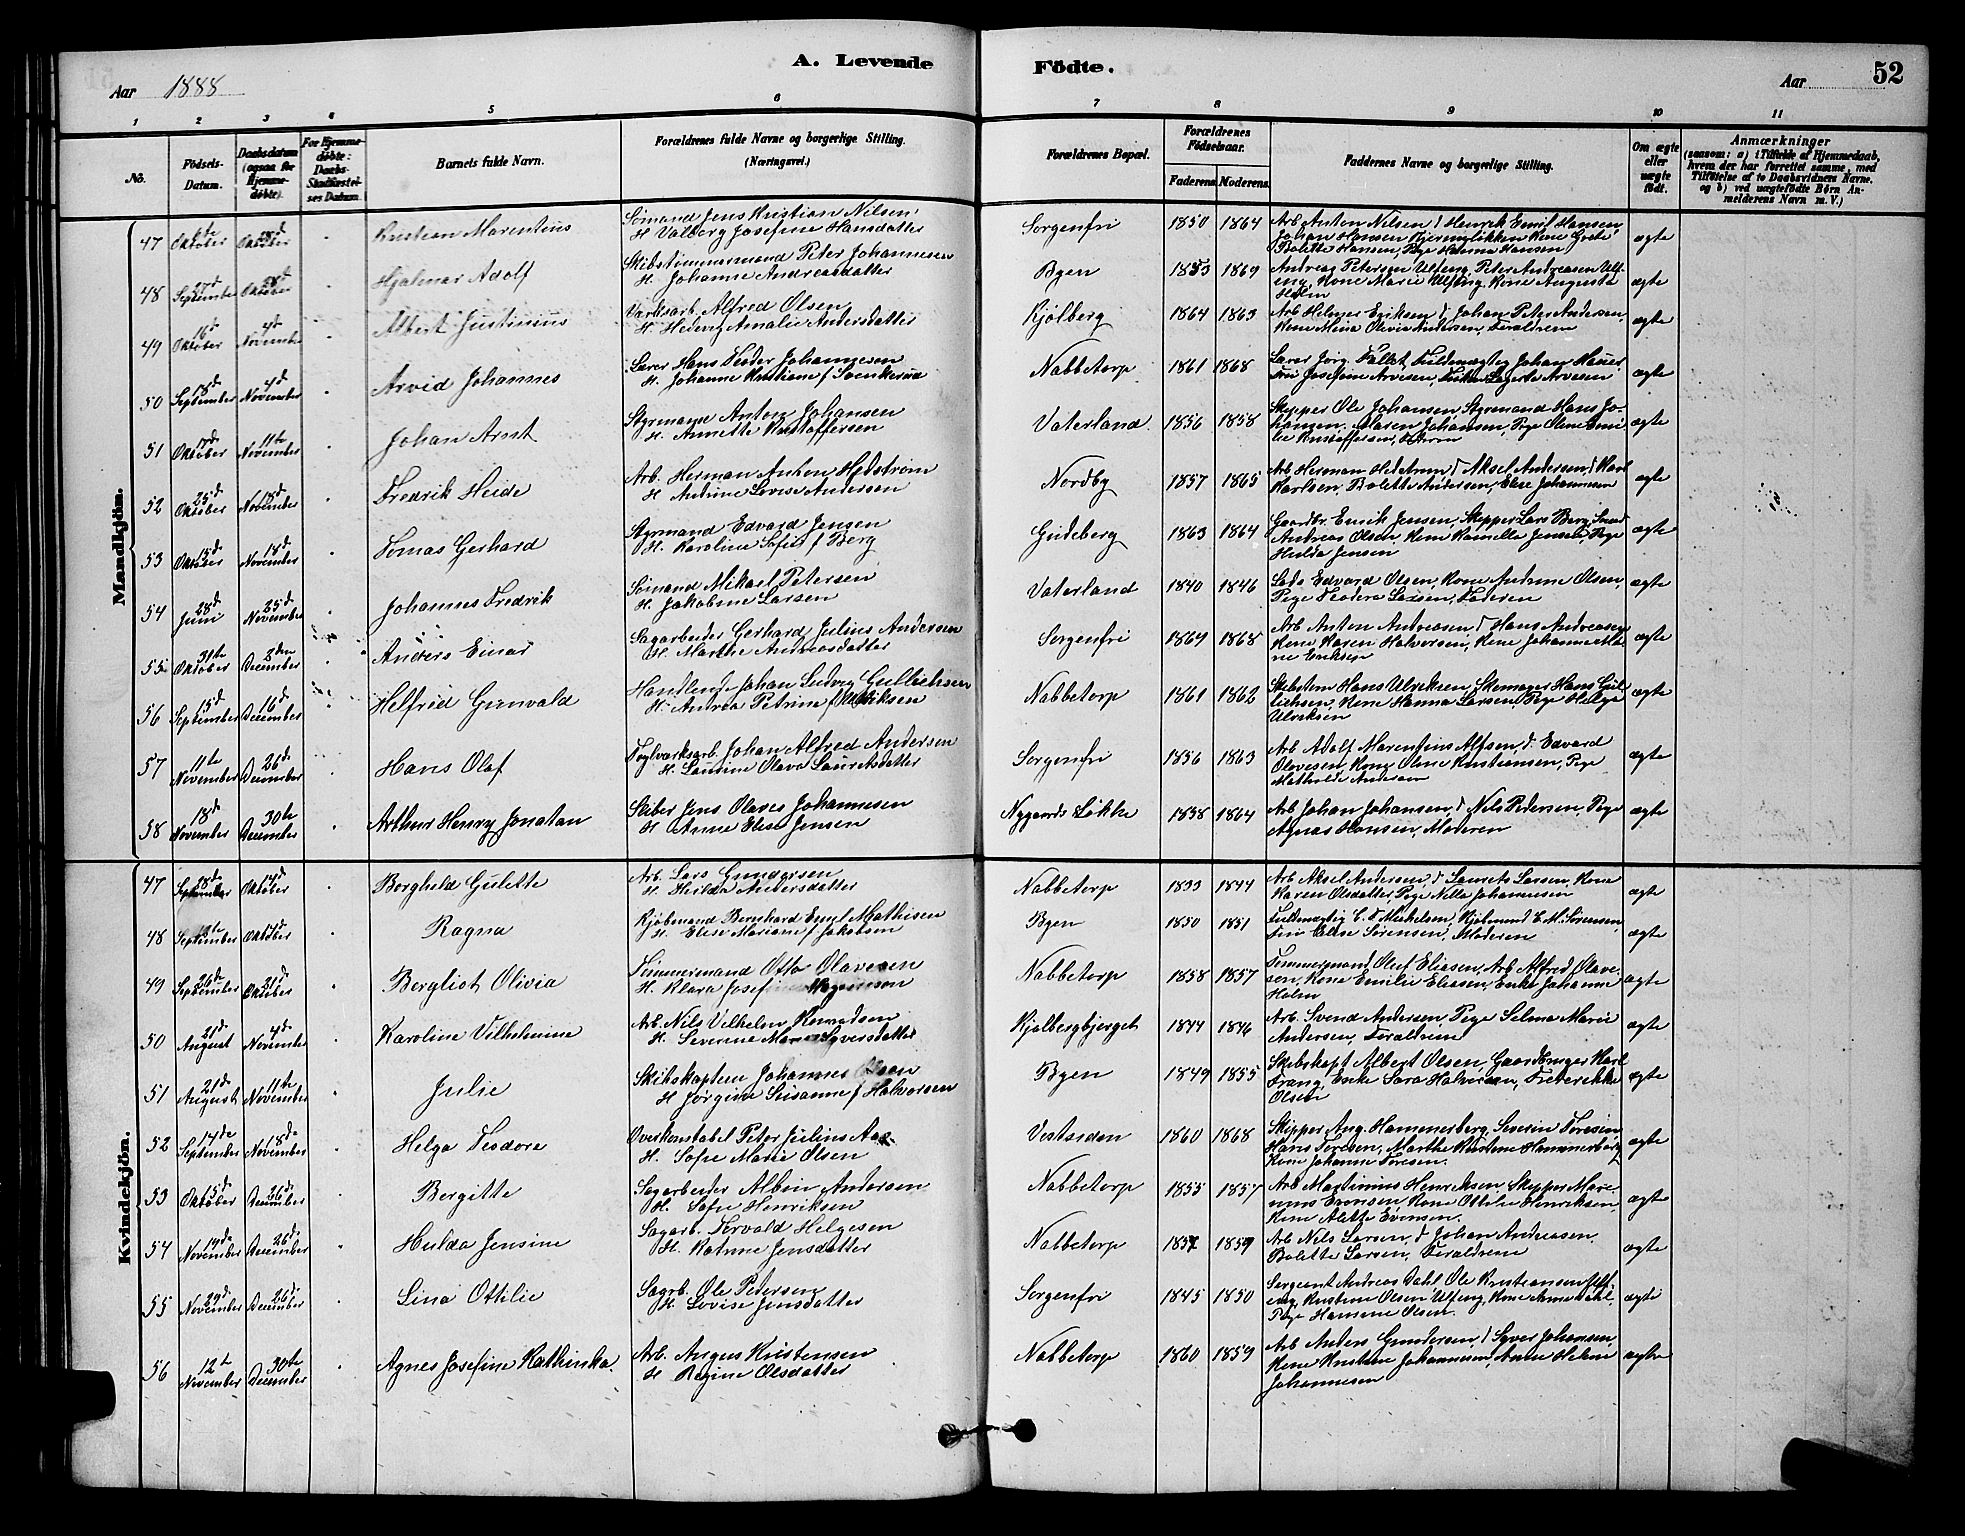 A. Levende Födte.
Aar 1888
Aar
52
1 2 3 4 5 6 7 8 9 10 11
No.
Födsels-Datum.
Daabsdatum (ogsaa for Hjemme-døbte).
For Hjemme-døbte: Daabs-Stadfæstel-ses Datum.
Barnets fulde Navn.
Forældrenes fulde Navne og borgerlige Stilling. (Næringsvei.)
Forældrenes Bopæl.
Forældrenes Födselsaar.
Faderens. Moderens.
Faddernes Navne og borgerlige Stilling.
Om ægte eller uægte født.
Anmærkninger
(saasom: a) i Tilfælde af Hjemmedaab, hvem der har forrettet samme, med Tilføielse af to Daabsvidners Navne. og b) ved uægtefödte Børn An-melderens Navn m. V.)
Mandkjön.
47 Oktober Oktober Kristian Marentius
Sømand Jens Kristian Nilsen
H. Valborg Josefine Hansdatter
Sorgenfri 1850 1864
Arb. Anton Nilsen, Henrik Emil Hansen
Johan Hansen Kone Grete
Bolette Hansen, Pige Hanna Hansen
ægte
48 27d September Oktober Hjalmar Adolf
Skibstømmermand Peter Johannesen
H. Johanne Andreasdatter
Byen 1853 1869
Andreas Petersen Ulfeng, Peter Andreasen Ulf-
eng, Kone Marie Ulfeng, Kone Augusta
Holm
ægte
49 16d Oktober 4d November Albert Justinius
Værksarb. Alfred Olsen
H. Hedevig Amalie Andersdatter
Kjølberg 1864 1863
Arb. Helmer Eriksen, Johan Peter Andersen,
Kone Mina Olivia Andersen, Forældrene
ægte
50 18d September 4d November Arvid Johannes
Lærer Hans Teodor Johannesen
H. Johanne Kristiane f. Svenkerud
Nabbetorp 1861 1868
Lærer Jørg. Fallet, Fuldmægtig Johan Hauer
Fru Josefine Arvesen, Frøken Arvesen
ægte
51 17d Oktober 11te November Johan Arnt
Styrmand Anton Johansen
H. Annette Kristoffersen
Vaterland 1856 1858
Skipper Ole Johansen, Styrmand Hans Jo-
hansen, Maren Johansen, Pige Oline Emi-
lie Kristoffersen, Faderen
ægte
52 25d Oktober 18d November Fredrik Heide
Arb. Herman Anton Hedstrøm
H. Andrine Lovise Andersen
Nordby 1857 1865
Arb. Herman Hedstrøm, Aksel Andersen, Karl
Karlsen, Bolette Andersen, Elise Johannesen
ægte
53 15d Oktober 18d November Tomas Gerhard
Styrmand Edvard Jensen
H. Karoline Sofie f. Berg
Gudeberg 1863 1864
Gaardbr. Emrik Jensen, Skipper Lars Berg, Smed
Andreas Olsen, Kone Kamilla Jensen, Pige
Hulda Jensen
ægte
54 28d Juni 25d November Johannes Fredrik
Sømand Mikael Petersen
H. Jakobine Larsen
Vaterland 1840 1846
Lods Edvard Olsen, Kone Andrine Olsen,
Pige Teodora Larsen, Faderen
ægte
55 31te Oktober December Anders Einar
Sagarbeider Gerhard Julius Andersen
H. Marthe Andreasdatter
Sorgenfri 1864 1868
Arb. Anton Andreasen, Hans Andreasen
Kone Karen Halvorsen, Kone Johanne
Eriksen
ægte
56 15d September 16d December Helfrid Grunvald
Handlende Johan Ludvig Gullichsen
H. Andrea Petrine f. Ulriksen
Nabbetorp 1861 1862
Hans Ulriksen, Skomager Hans Gul-
lichsen, Kone Hanna Larsen, Pige Helga
Ulriksen
ægte
57 11te November 26d December Hans Olaf
Teglværksarb. Johan Alfred Andersen
H. Laurine Olava Lauretsdatter
Sorgenfri 1856 1863
Arb. Adolf Marentius Alfsen, Edvard
Olavesen Kone Oline Kristiansen, Pige
Mathilde Andersen
ægte
58 18d November 30te December Arthur Henry Jonatan
Jens Olaves Johannesen
H. Anne Elise Jensen
Nygaards Løkke 1838 1864
Arb. Johan Johansen, Nils Pedersen, Pige
Agnes Hansen, Moderen
ægte
Kvindekjön.
47 18de September 14d Oktober Borghild Gulette
Arb. Lars Gundersen
H. Hulda Andersdatter
Nabbetorp 1833 1844
Arb. Aksel Andersen, Laurets Larsen, Kone
Karen Olsdatter, Pige Nilla Johannesen
ægte
48 September Oktober Ragna
Kjøbmand Bernhard Emil Mathisen
H. Elise Mariane f. Jakobsen
Byen 1850 1851
Fuldmægtig C. F. Mikelsen, Kjøbmand C. M. Sørensen,
Fru Elise Sørensen, Moderen
ægte
49 26de September 21d Oktober Berglist Olivia
Tømmermand Otto Olavesen
H. Klara Josefine Magnusson
Nabbetorp 1858 1857
Tømmermand Oluf Eliasen, Arb. Alfred Olave-
sen, Kone Emilie Eliasen, Enke Johanne
Holm
ægte
50 21d August 4d November Karoline Vilhelmine
Arb. Nils Vilhelm Knudsen
H. Severine Marie Syversdatter
Kjølbergbjerget 1844 1846
Arb. Svend Andersen, Pige Selma Marie
Andersen, Forældrene
ægte
51 21d August 11te November Julie
Skibskaptein Johannes Olsen
H. Jørgine Susanne f. Halvorsen
Byen 1849 1855
Skibskapt. Albert Olsen, Gaardbruger Karl
Frang, Enke Sara Halvorsen, Frederikke
Olsen
ægte
52 14de September 18d November Helga Teodora
Overkonstabel Peter Julius Aas
H. Sofie Marie Olsen
Vestsiden 1860 1868
Skipper Aug. Hammerberg, Severin Toresen
Hans Toresen, Marthe Kristine Hammerberg
Kone Johanne Toresen.
ægte
53 15d Oktober 26d December Bergitte
Sagarbeider Albin Andersen
H. Sofie Henriksen
Nabbetorp 1855 1857
Arb. Martinius Henriksen, Skipper Mari-
nius Evensen, Kone Ottilie Henriksen,
Kone Alette Evensen.
ægte
54 19d November 26d December Hulda Jensine
Sagarb. Torvald Helgesen
H. Katrine Jensdatter
Nabbetorp 1857 1859
Arb. Nils Larsen, Johan Andreasen,
Bolette Larsen, Forældrene
ægte
55 29d November 26d December Lina Ottilie
Sagrb. Ole Pedersen
H. Lovise Jensdatter
Sorgenfri 1845 1850
Sergeant Andreas Dahl, Ole Kristiansen Ulf-
eng, Kristine Olsen Ulfeng, Kone Anne Dahl,
Pige Hansine Olsen.
ægte
56 12te November 30te December Agnes Josefine Kathinka
Arb. August Kristensen
H. Regine Olsdatter
Nabbetorp 1860 1859
Arb. Anders Gundersen, Syver Johansen,
Kone Kristine Johannesen, Anne Helene
Johannesen
ægte